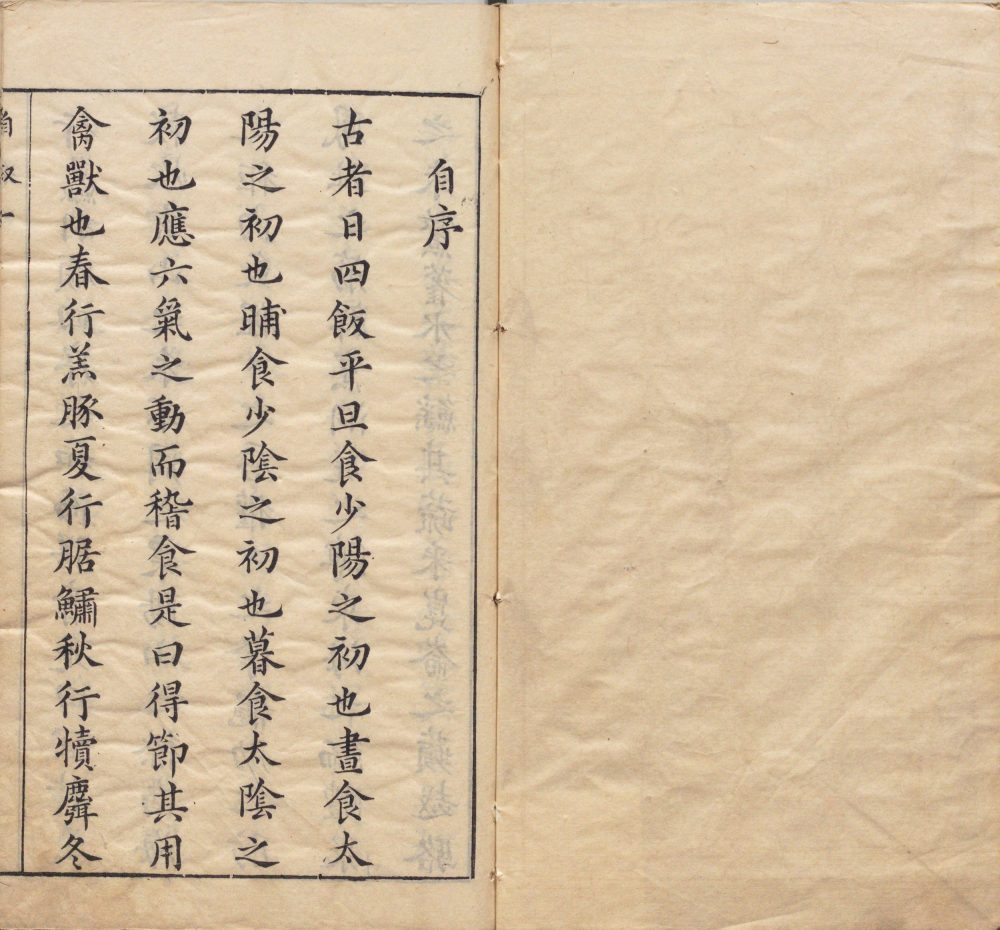 自序
古者日四飯平旦食少陽之初也晝食太
陽之初也晡食少陰之初也暮食太陰之
初也應六氣之動而稽食是曰得節其用
禽獸也春行羔豚夏行腒鱐秋行犢麛冬